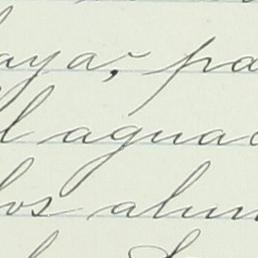 aya, pa
l agua
los alum